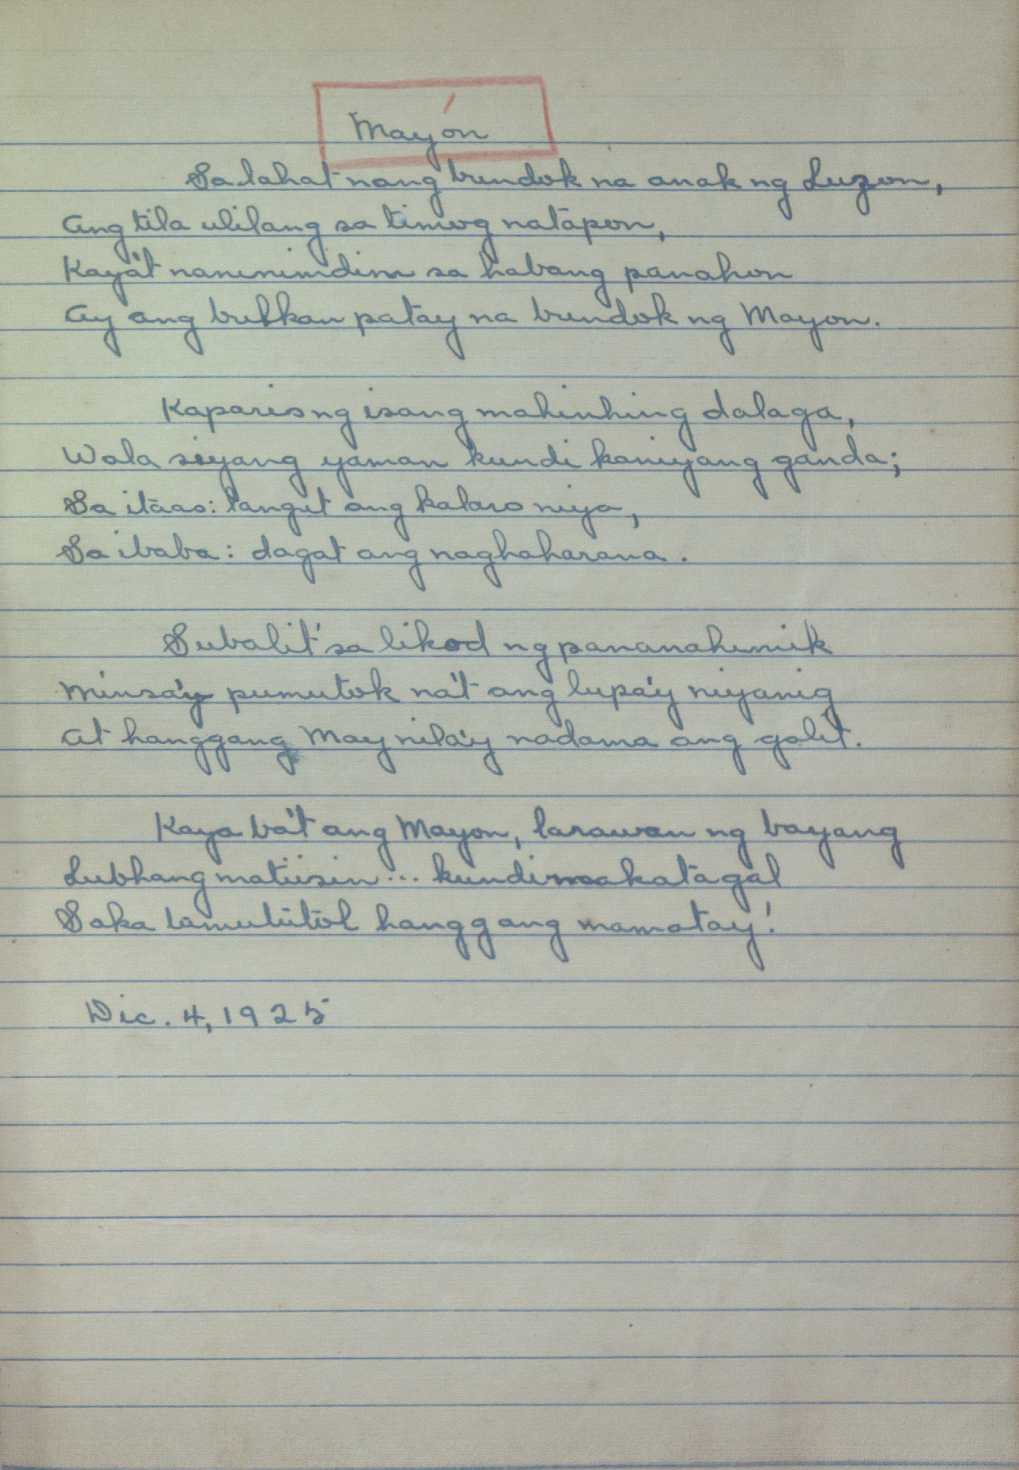 Mayón
Sa lahat nang bundok na anak ng Luzon,
Ang tila ulilang sa timog natápon,
Kaya't naninimdim sa habang panahon
Ay ang bulkan patay na bundok ng Mayon.
Kaparis ng isang mahinhing dalaga,
Wala siyang yaman kundi kaniyang ganda;
Sa itáas: langit ang kalaro niya,
Sa ibaba: dagat ang naghaharana.
Subalit sa likod ng pananahimik
Minsa'y pumutok na't ang lupa'y niyanig
At hanggang Maynila'y nadama ang galit.
Kaya ba't ang Mayon, larawan ng bayang
Lubhang matiisin... kundi makatagal
Saka tumututol hanggang mamatay!
Dic. 4, 1925